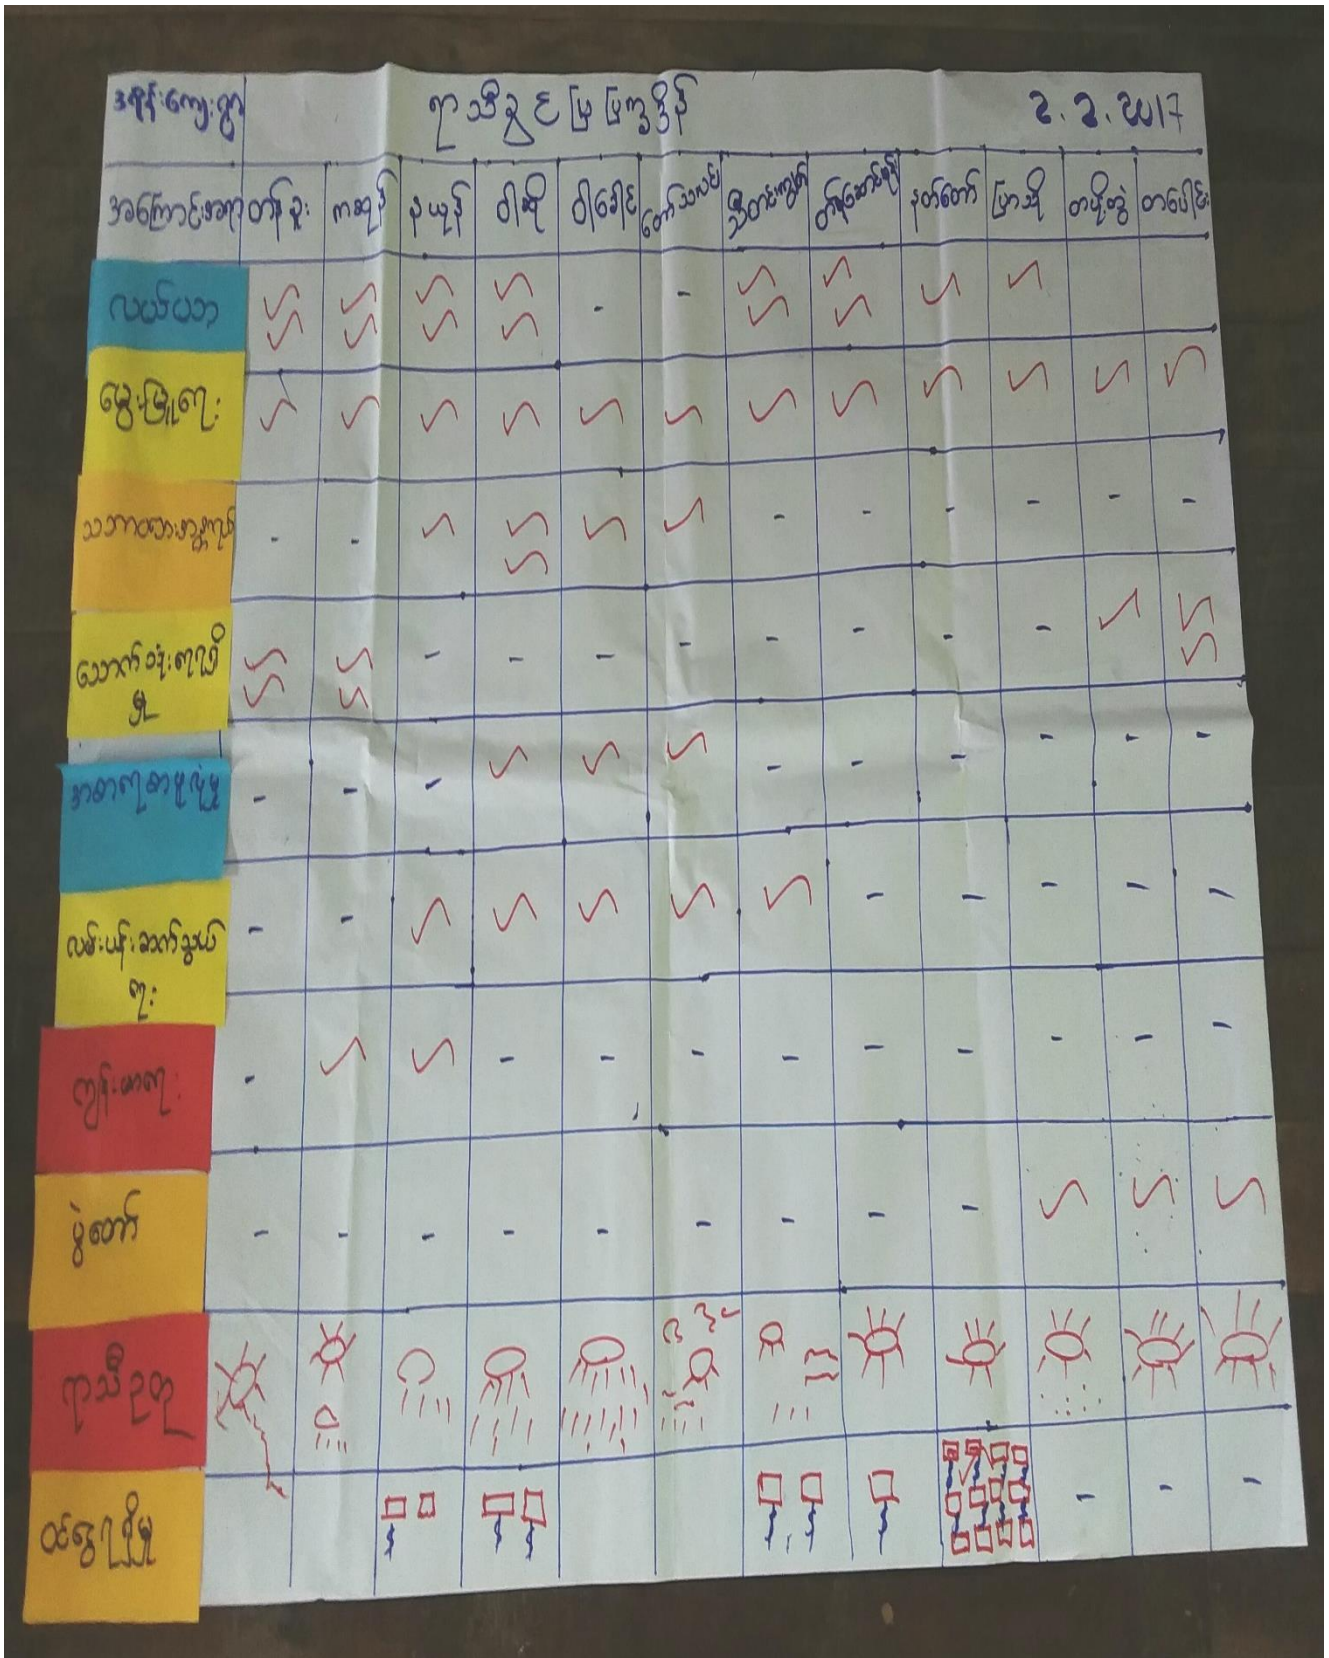 ရာသီခွင်ပြပြက္ခဒိန်
2.2.2017
အကြောင်းအရာ တန်ခူး ကဆုန် နယုန် ဝါဆို ဝါခေါင် တော်သလင်း သီတင်းကျွတ် တန်ဆောင်မုန်း နတ်တော် ပြာသို တပို့တွဲ တပေါင်း
လယ်ယာ - -
မွေးမြူရေး
သဘာဝဘေးအန္တရာယ် - - - - - - - -
သောက်သုံးရေရရှိ - - - - - - - -
မှု
အစားရေစာဖူလုံမှု - - - - - - - - -
လမ်းပန်းဆက်သွယ် - - - - - - -
ရေး
ကျန်းမာရေး - - - - - - - - - -
ပွဲတော် - - - - - - - - -
ရာသီဥတု
ဝင်ငွေရရှိမှု - - -